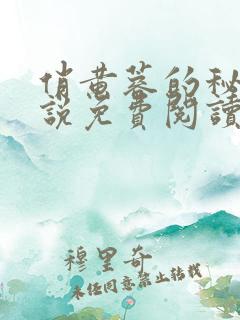 俏黄蓉的秘
説免費閱讀
穆里奇
未经同意禁止转载